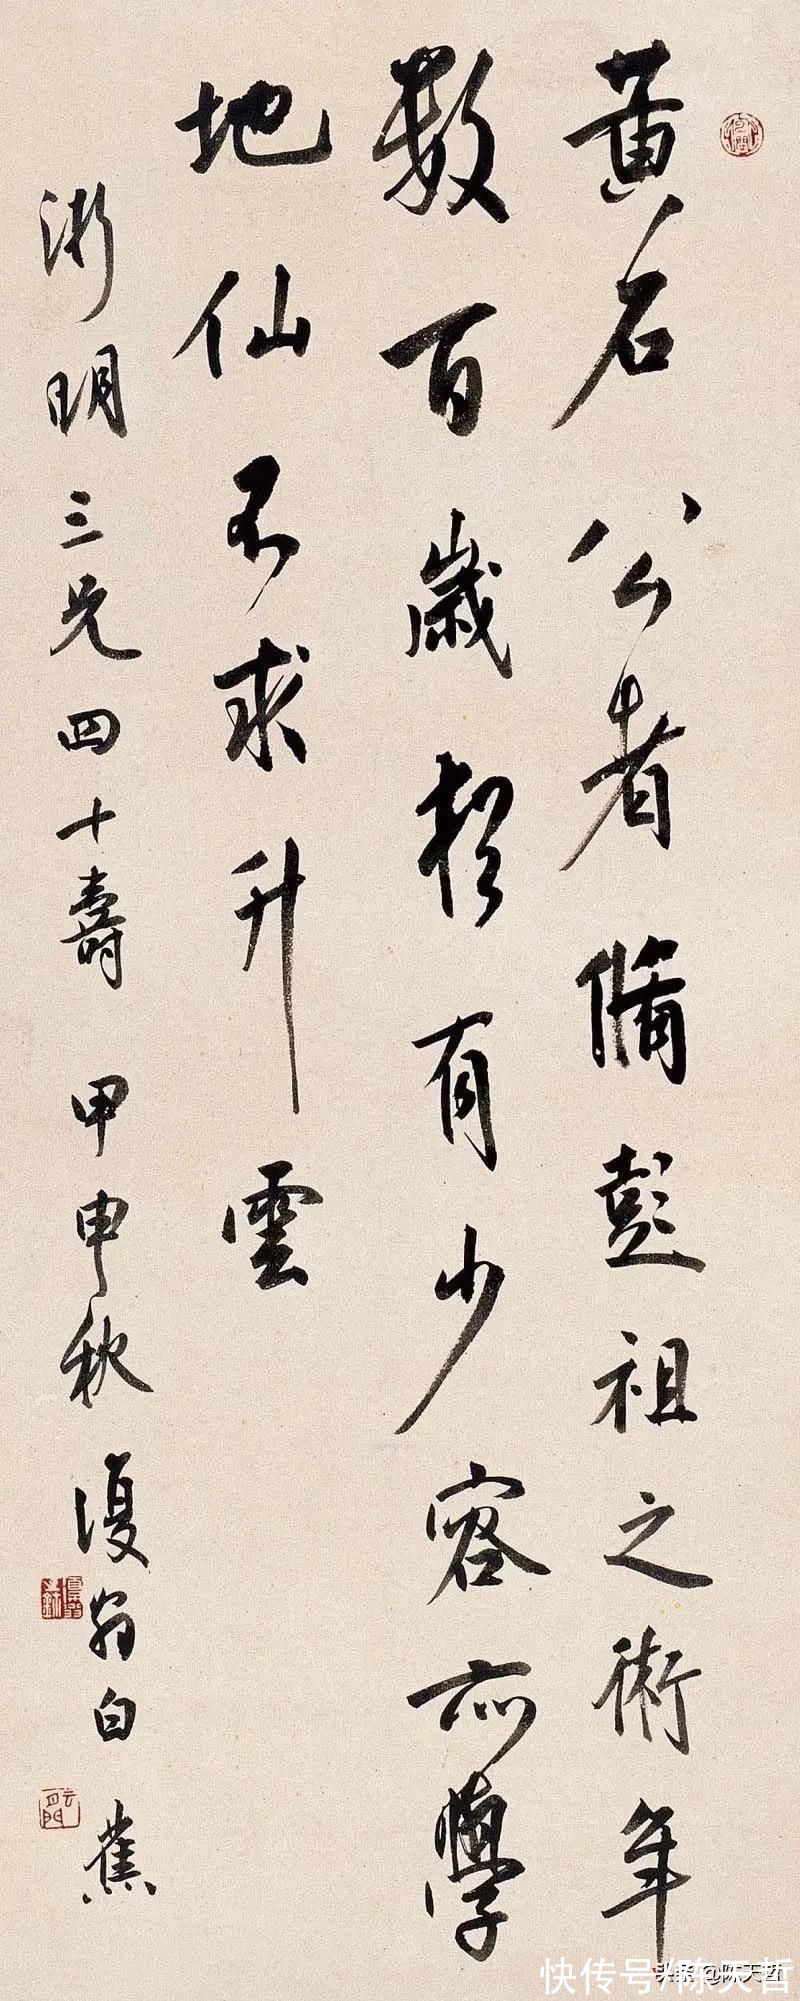 黄石公者脩彭祖之術年
數百歲猶有少容亦學
地仙不求升雲
明三兄四十壽 甲申秋 復翁白蕉
快传号/陈天哲
头条@陈天哲